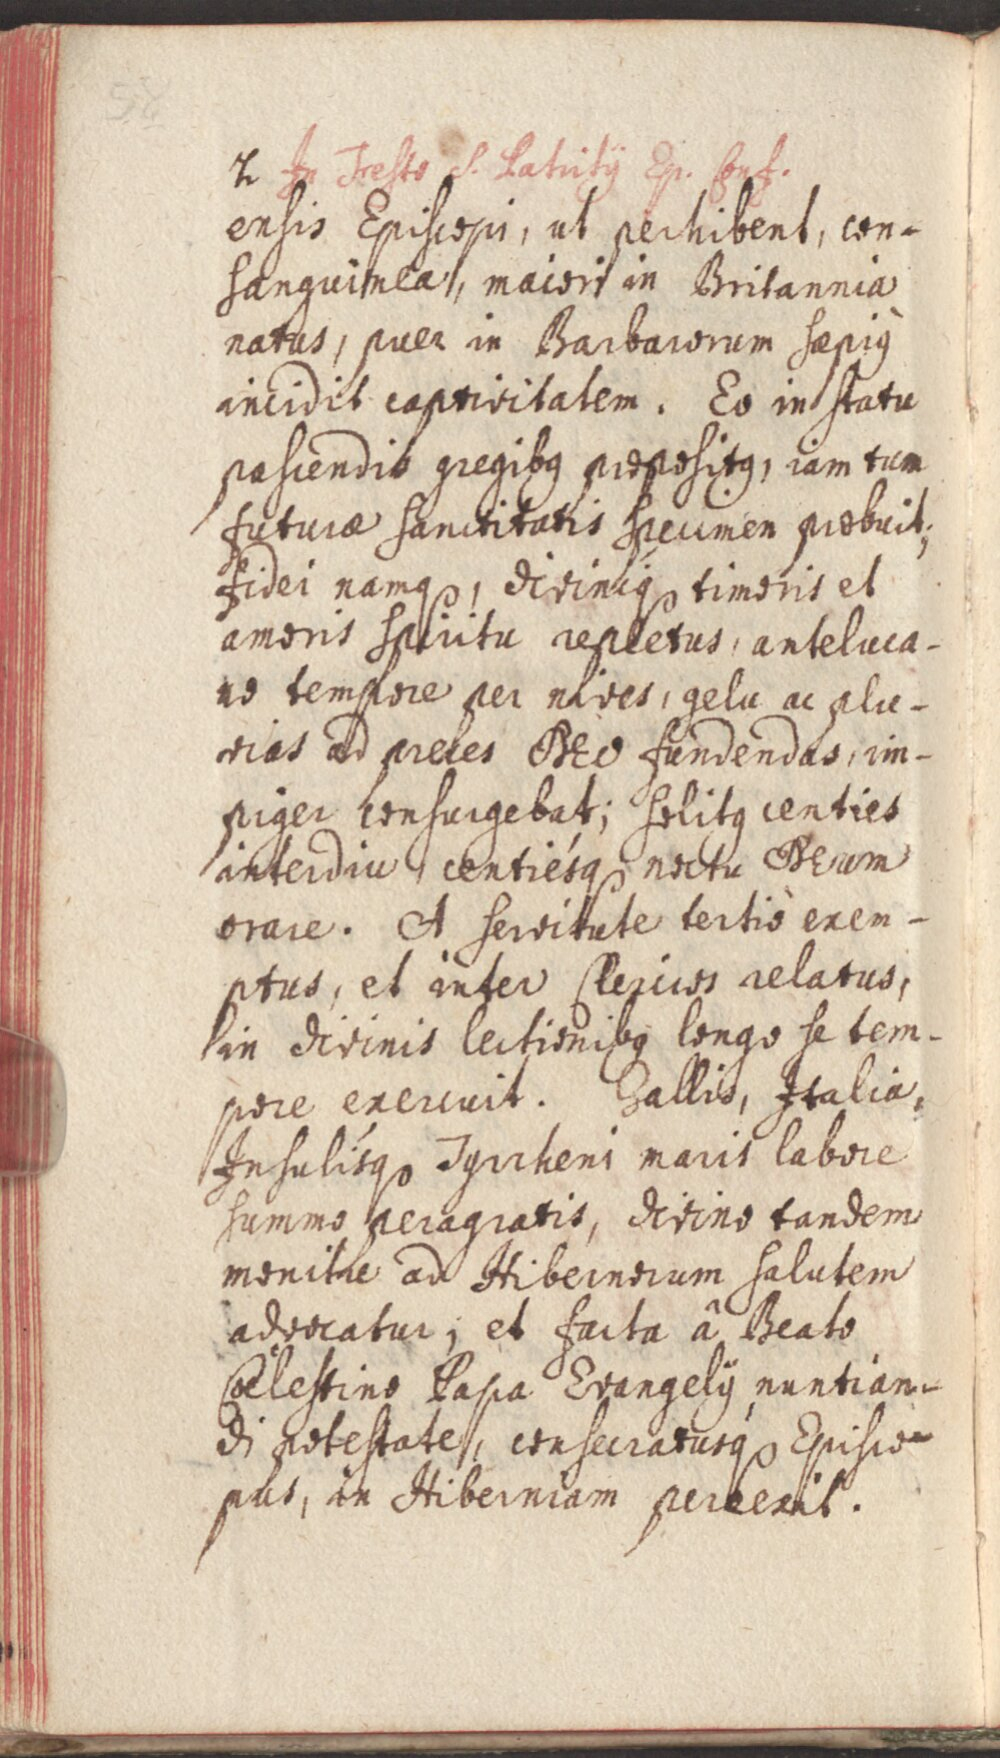 2 In Festo S. Patritÿ Ep. Conf.
ensis Episcopi, ut perhibent, con-
sanguinea, maiori in Britannia
natus, puer in Barbarorum sæpiꝰ
incidit captivitatem. Eo in statu
pascendis gregibꝰ præpositꝰ, iam tum
futuræ sanctitatis specimen præbuit;
fidei namqꝫ, diviniqꝫ timoris et
amoris spiritu repletus, anteluca-
no tempore per nives, gelu ac plu-
vias ad preces DEO fundendas, im-
piger consurgebat; solitꝰ centies
interdiu, centiésqꝫ noctu DEum
orare. A servitute tertiò exem-
ptus, et inter Clericos relatus,
in divinis lectionibꝰ longo se tem-
pore exercuit. Gallis, Italia,
Insulísqꝫ Tyrrheni maris labore
summo peragratis, divino tandem
monitu ad Hibernorum salutem
advocatur; et facta â Beato
Cœlestino Papa Evangelÿ nuntian-
di potestate, consecratusqꝫ Episco-
pus, in Hiberniam perrexit.